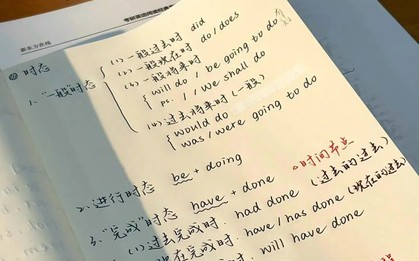 新东方在线
时态
1. "一般"时态
(1) 一般过去时 did
(2) 一般现在时 do/does
(3) 一般将来时
will do / be going to do
I/We shall do
(4) 过去将来时(一般)
would do
was/were going to do
2. 进行时态 be + doing
时间节点
3. "完成"时态 have + done
(1) 过去完成时: had done (过去的过去)
现在完成时: have/has done (现在的过去)
: will have done